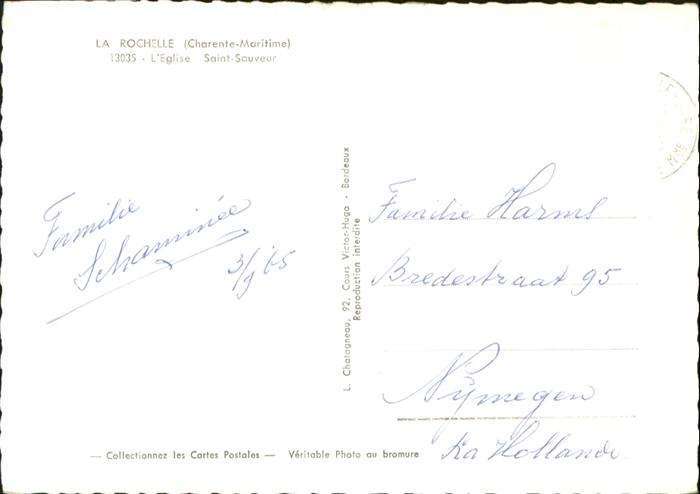 LA ROCHELLE (Charente-Maritime)
13035 - L'Eglise Saint-Sauveur
Familie
Schaminée
3/9 '65
L. Chatagneau, 92, Cours Victor-Hugo - Bordeaux
Reproduction interdite
Familie Harms
Bredestraat 95
Nijmegen
Hollande
— Collectionnez les Cartes Postales — Véritable Photo au bromure